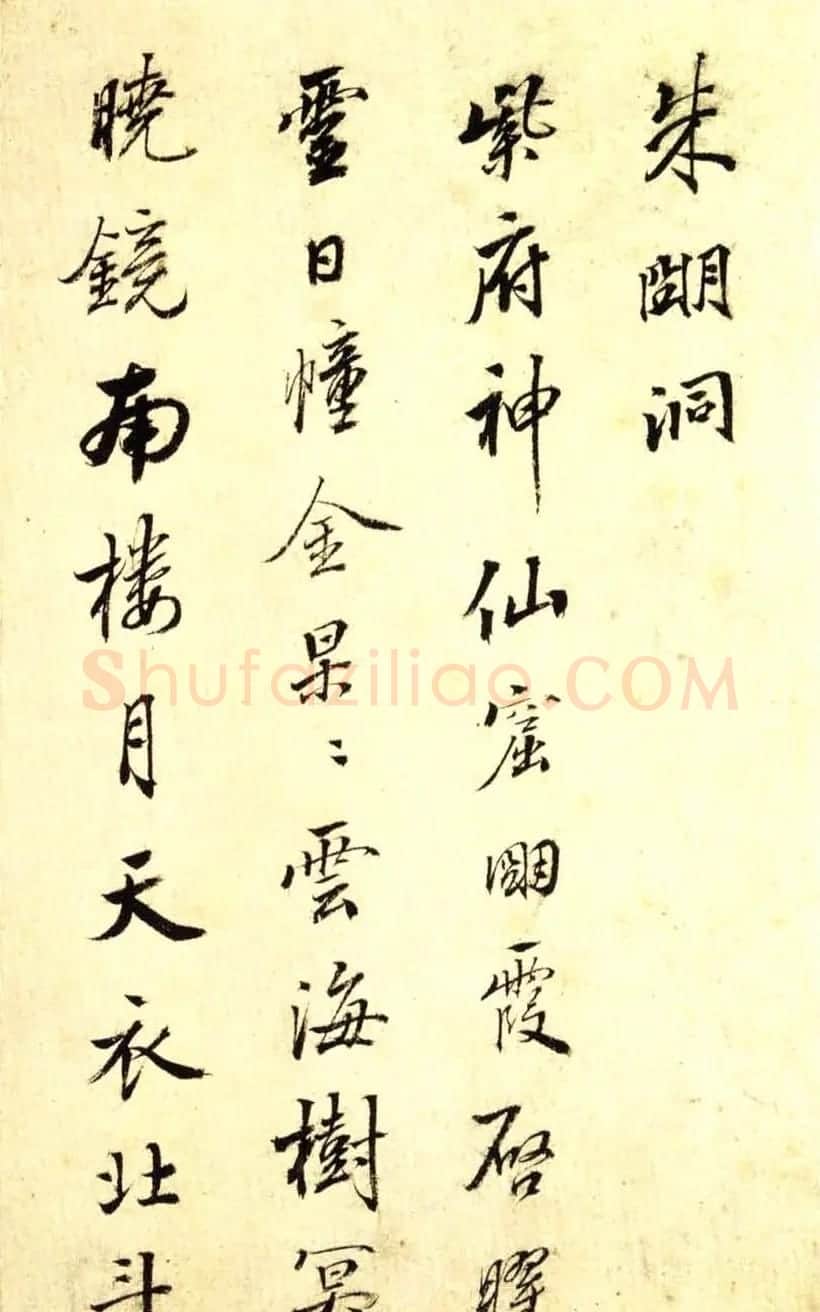 朱朙洞
紫府神仙窟朙霞启曜
靈日幢金杲〻雲海樹冥
曉鏡南樓月天衣北斗
Shufaziliao.COM